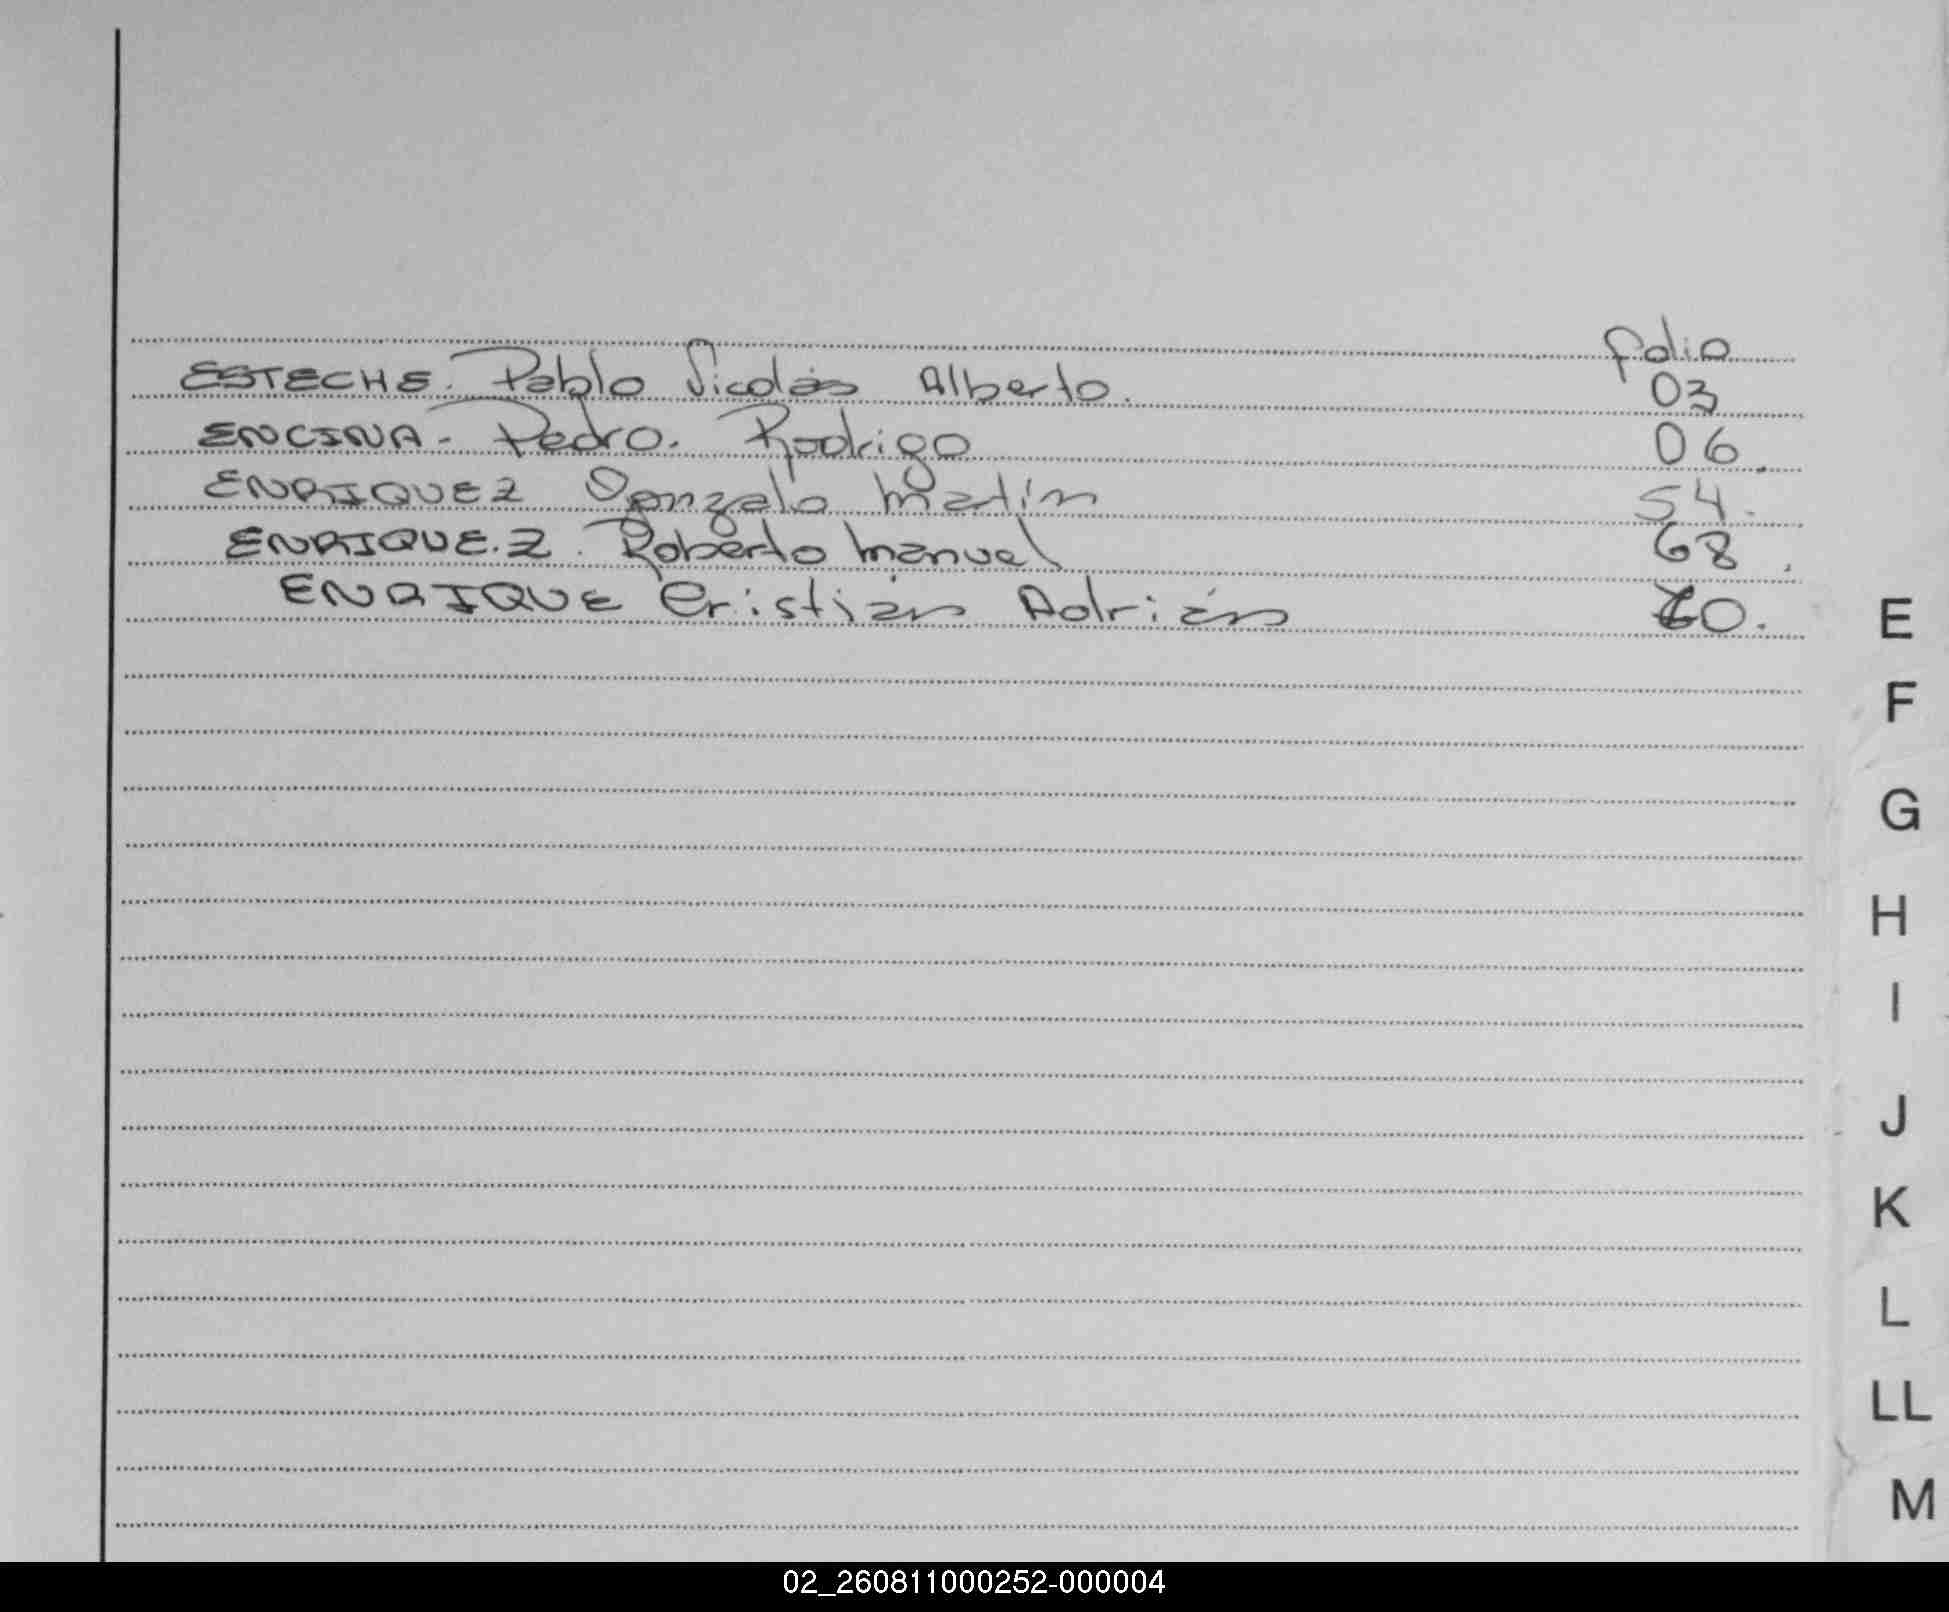 folio
ESTECHE. Pablo Nicolás Alberto. 03
ENCINA - Pedro. Rodrigo 06.
ENRIQUEZ Gonzalo Martín 54.
ENRIQUE.Z. Roberto Manuel 68.
ENRIQUE Cristián Adrián 70.
E
F
G
H
I
J
K
L
LL
M
02_260811000252-000004